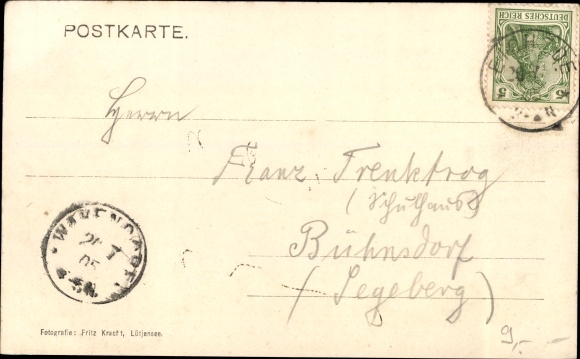 POSTKARTE.
DEUTSCHES REICH
5 5
Herrn
Franz Trenktrog
(Schulhaus)
Bühnsdorf
(Segeberg)
WAKENDORF
7
05
Fotografie: Fritz Kracht, Lütjensee.
9,-